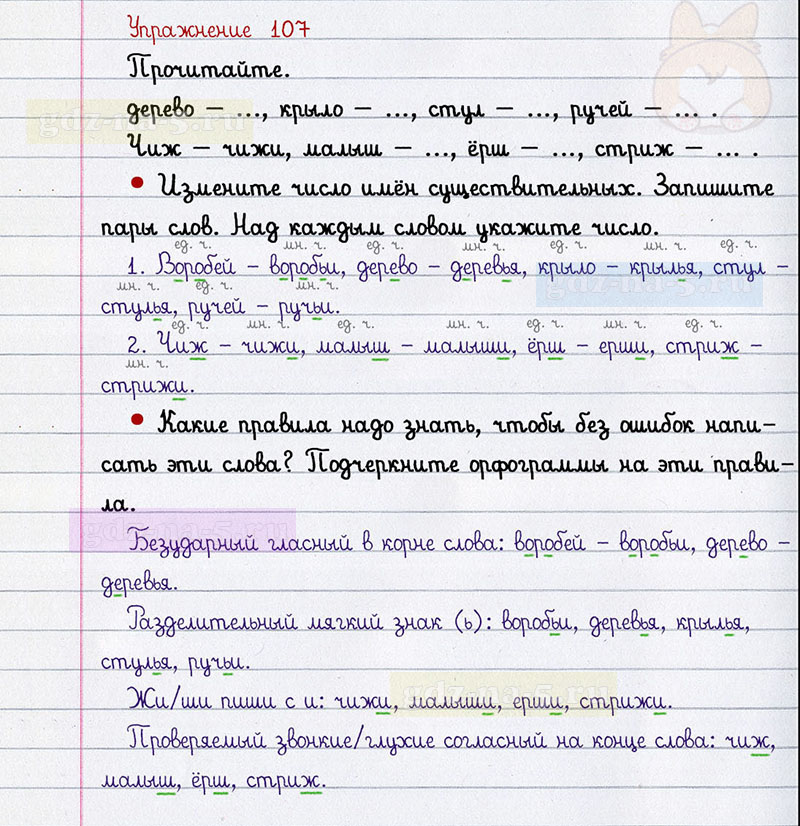 Упражнение 107
Прочитайте.
дерево – ..., крыло – ..., стул – ..., ручей – ... .
Чиж – чижи, малыш – ..., ёрш – ..., стриж – ... .
• Измените число имён существительных. Запишите
пары слов. Над каждым словом укажите число.
ед. ч. мн. ч. ед. ч. мн. ч. ед. ч. мн. ч. ед. ч.
1. Воробей – воробьи, дерево – деревья, крыло – крылья, стул –
мн. ч. ед. ч. мн. ч.
стулья, ручей – ручьи.
ед. ч. мн. ч. ед. ч. мн. ч. ед. ч. мн. ч. ед. ч.
2. Чиж – чижи, малыш – малыши, ёрш – ерши, стриж –
мн. ч.
стрижи.
• Какие правила надо знать, чтобы без ошибок напи-
сать эти слова? Подчеркните орфограммы на эти прави-
ла.
Безударный гласный в корне слова: воробей – воробьи, дерево –
деревья.
Разделительный мягкий знак (ь): воробьи, деревья, крылья,
стулья, ручьи.
Жи/ши пиши с и: чижи, малыши, ерши, стрижи.
Проверяемый звонкие/глухие согласный на конце слова: чиж,
малыш, ёрш, стриж.
gdz-na-5.ru
gdz-na-5.ru
gdz-na-5.ru
gdz-na-5.ru